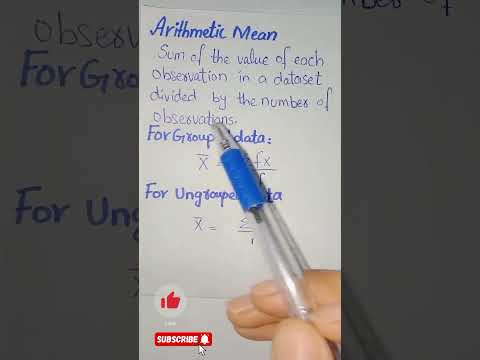 Arithmetic Mean
Sum of the value of each
observation in a dataset
divided by the number of
observations.
For Group data:
X̄ = fx
For Ungrouped data
X̄ = Σ
SUBSCRIBE